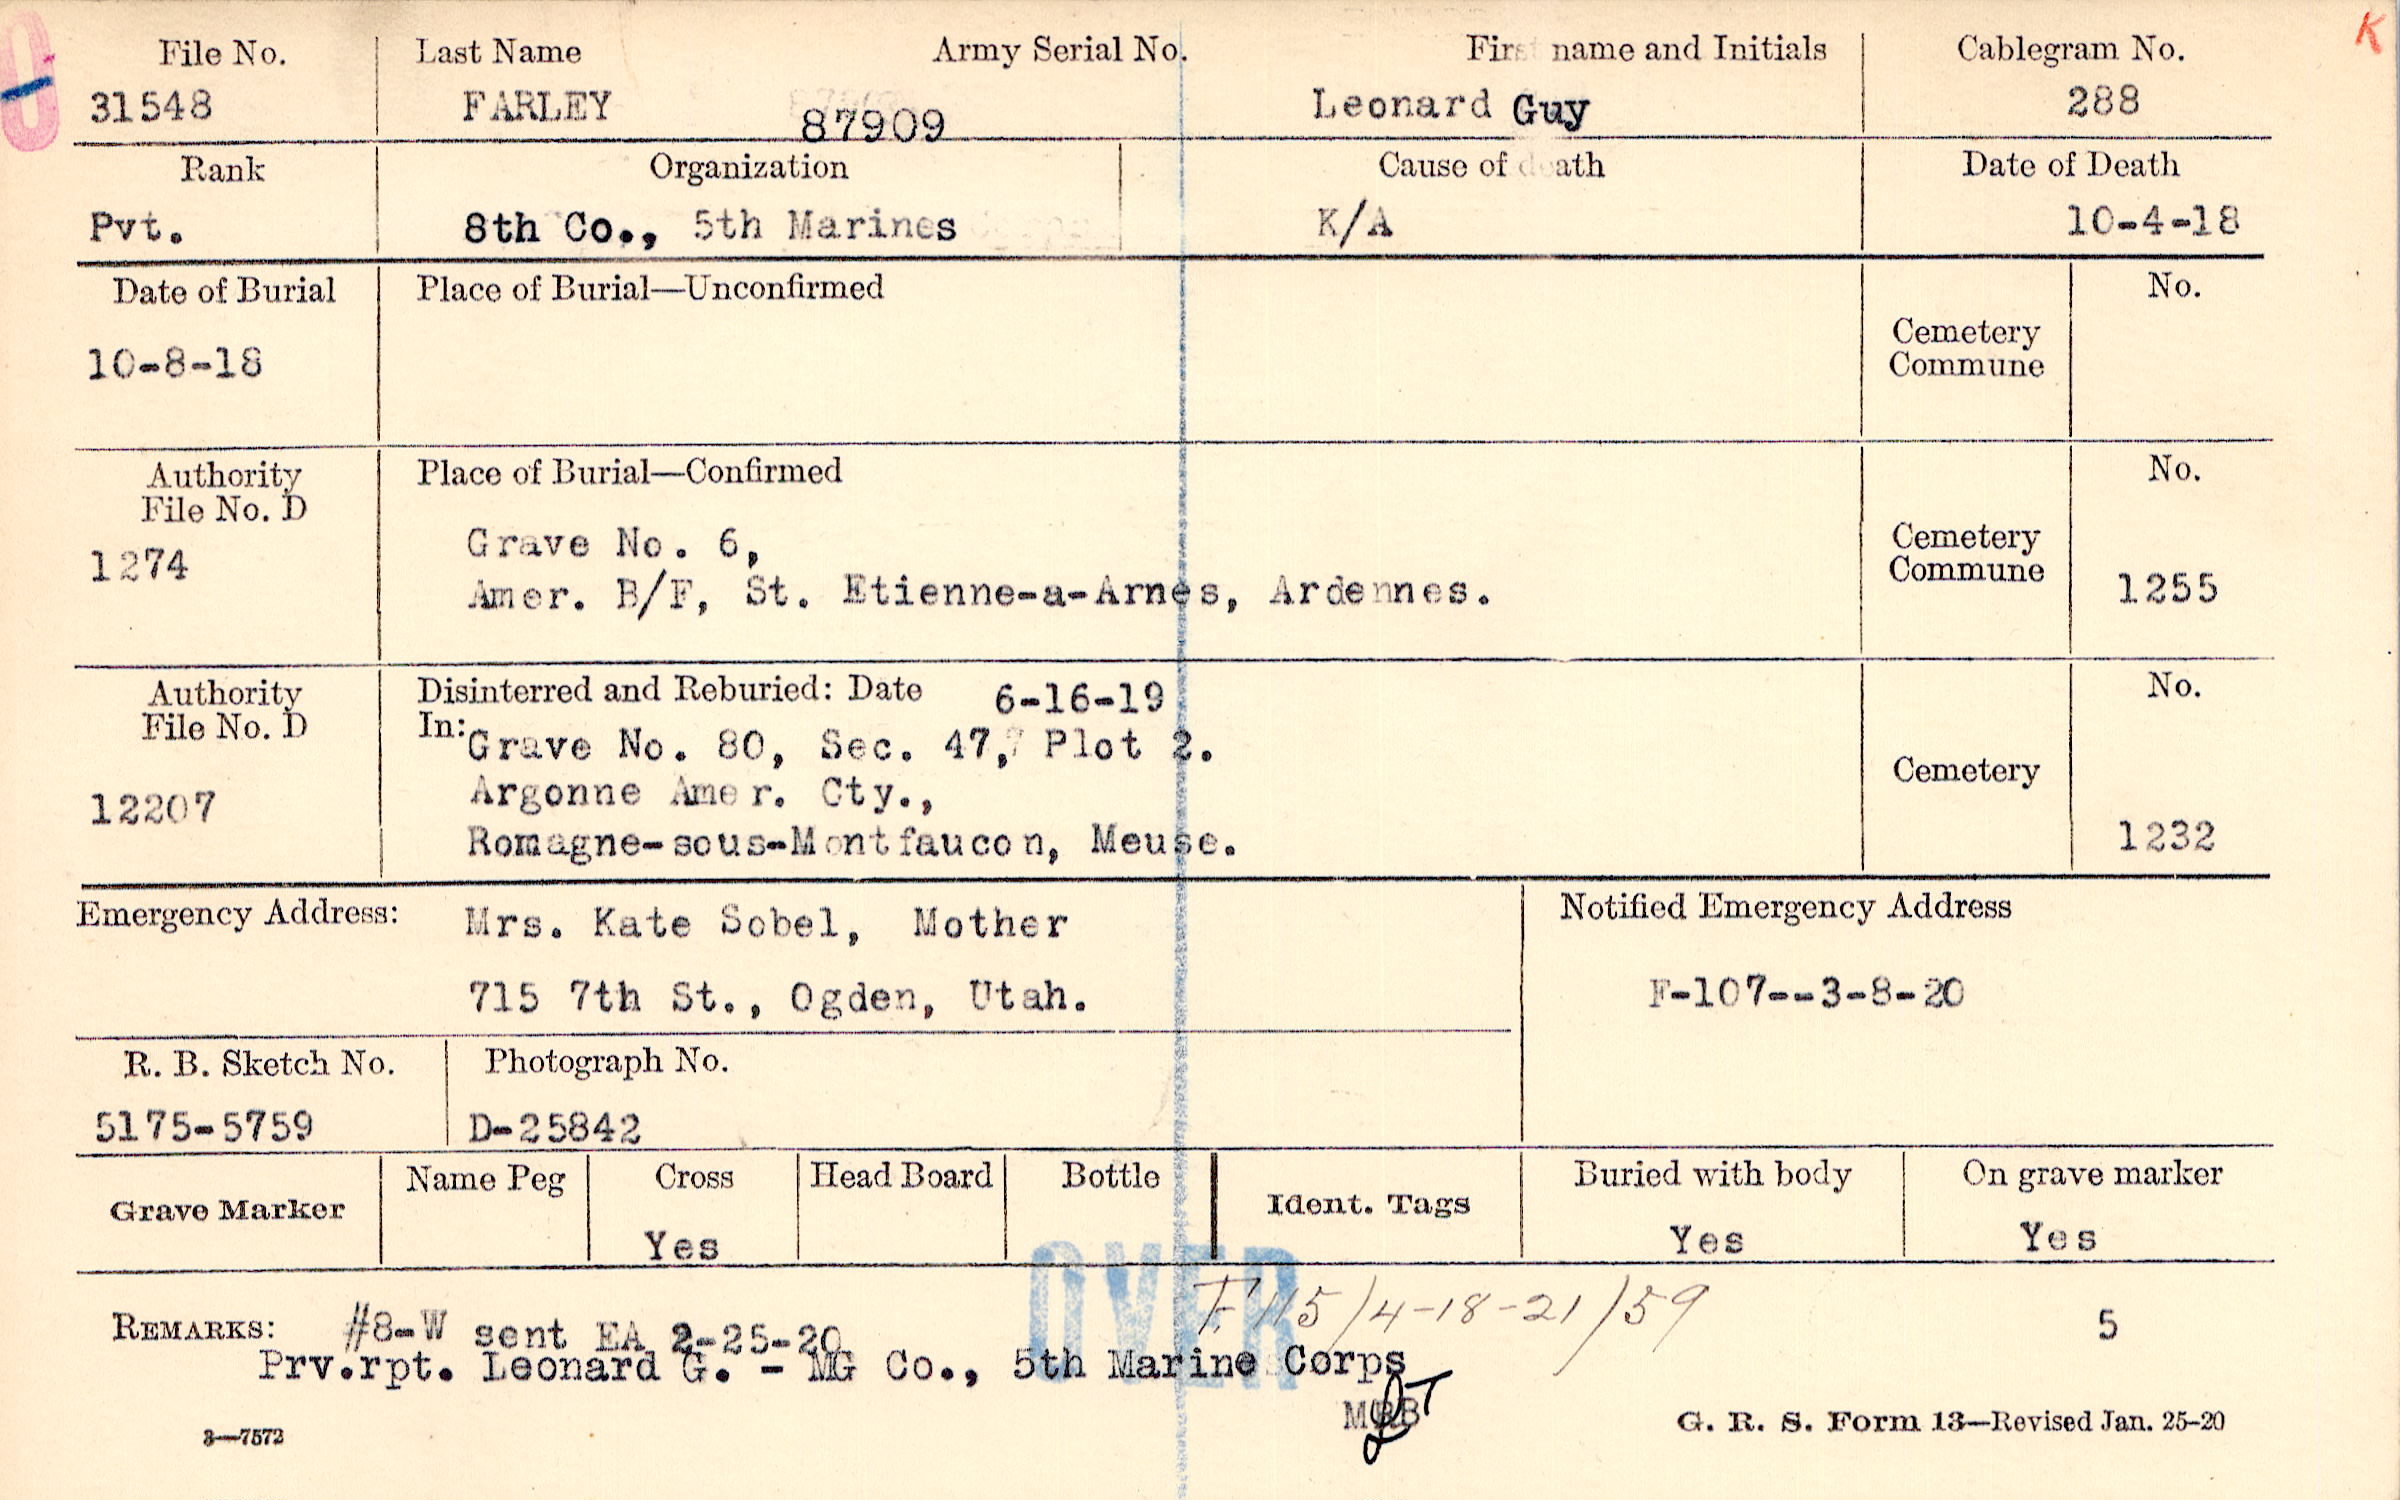 K
File No. Last Name Army Serial No. First name and Initials Cablegram No.
31548 FARLEY 87909 Leonard Guy 288
Rank Organization Cause of death Date of Death
Pvt. 8th Co., 5th Marines K/A 10-4-18
Date of Burial Place of Burial—Unconfirmed No.
10-8-18
Cemetery
Commune
Authority Place of Burial—Confirmed No.
File No. D
1274
Grave No. 6,
Amer. B/F, St. Etienne-a-Arnes, Ardennes.
Cemetery
Commune
1255
Authority Disinterred and Reburied: Date 6-16-19 No.
File No. D In: Grave No. 80, Sec. 47, Plot 2.
Argonne Amer. Cty., Cemetery
12207
Romagne-sous-Montfaucon, Meuse. 1232
Emergency Address: Mrs. Kate Sobel, Mother Notified Emergency Address
715 7th St., Ogden, Utah. F-107--3-8-20
R. B. Sketch No. Photograph No.
5175-5759 D-25842
Grave Marker Name Peg Cross Head Board Bottle Ident. Tags Buried with body On grave marker
Yes Yes Yes
OVER
F115/4-18-21/59
REMARKS: #8-W sent EA 2-25-20 5
Prv.rpt. Leonard G. - MG Co., 5th Marine Corps
3—7572 G. R. S. Form 13—Revised Jan. 25-20